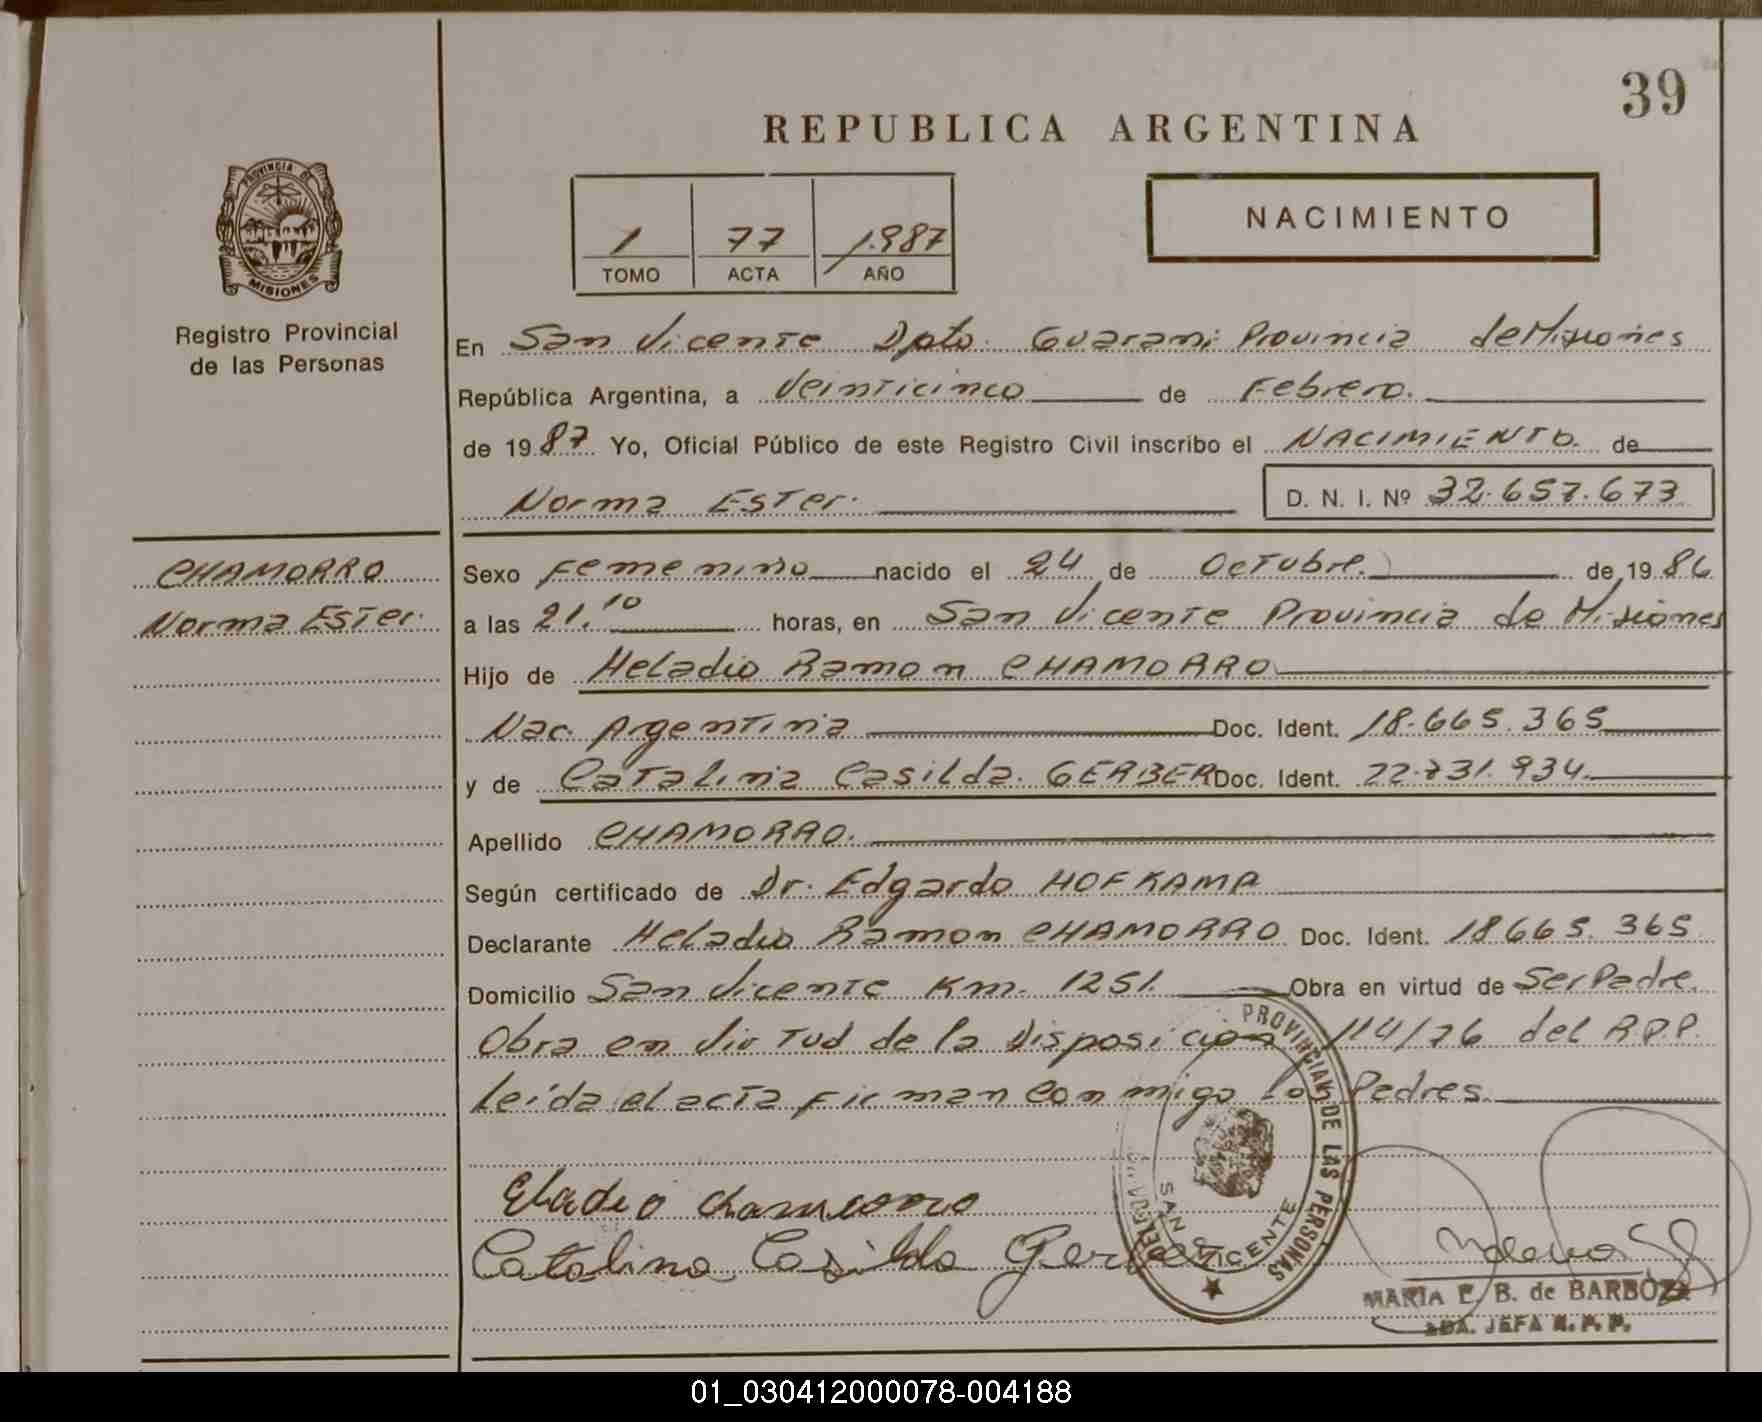 39
REPUBLICA ARGENTINA
PROVINCIA DE
MISIONES
Registro Provincial
de las Personas
1 77 1.987
TOMO ACTA AÑO
NACIMIENTO
En San Vicente Dpto. Guarani Provincia de Misiones
República Argentina, a Veinticinco de Febrero.
de 1987 Yo, Oficial Público de este Registro Civil inscribo el NACIMIENTO. de
Norma Ester. D. N. I. Nº 32.657.673
CHAMORRO
Norma Ester.
Sexo Femenino nacido el 24 de Octubre. de 1986
a las 21.10 horas, en San Vicente Provincia de Misiones
Hijo de Heladio Ramon CHAMORRO
Nac. Argentina Doc. Ident. 18.665.365
y de Catalina Casilda. GERBER Doc. Ident. 22.731.934
Apellido CHAMORRO.
Según certificado de Dr. Edgardo HOFKAMP
Declarante Heladio Ramon CHAMORRO Doc. Ident. 18665.365
Domicilio San Vicente Km. 1251. Obra en virtud de Ser Padre.
Obra en Virtud de la Disposicion 114/76 del R.P.P.
Leida el acta firman conmigo los Padres.
Eladio Chamorro
Catalina Casilda Gerber
PROVINCIAL DE LAS PERSONAS
SAN VICENTE
MARIA E. B. de BARBOZA
JEFA R. P. P.
01_030412000078-004188